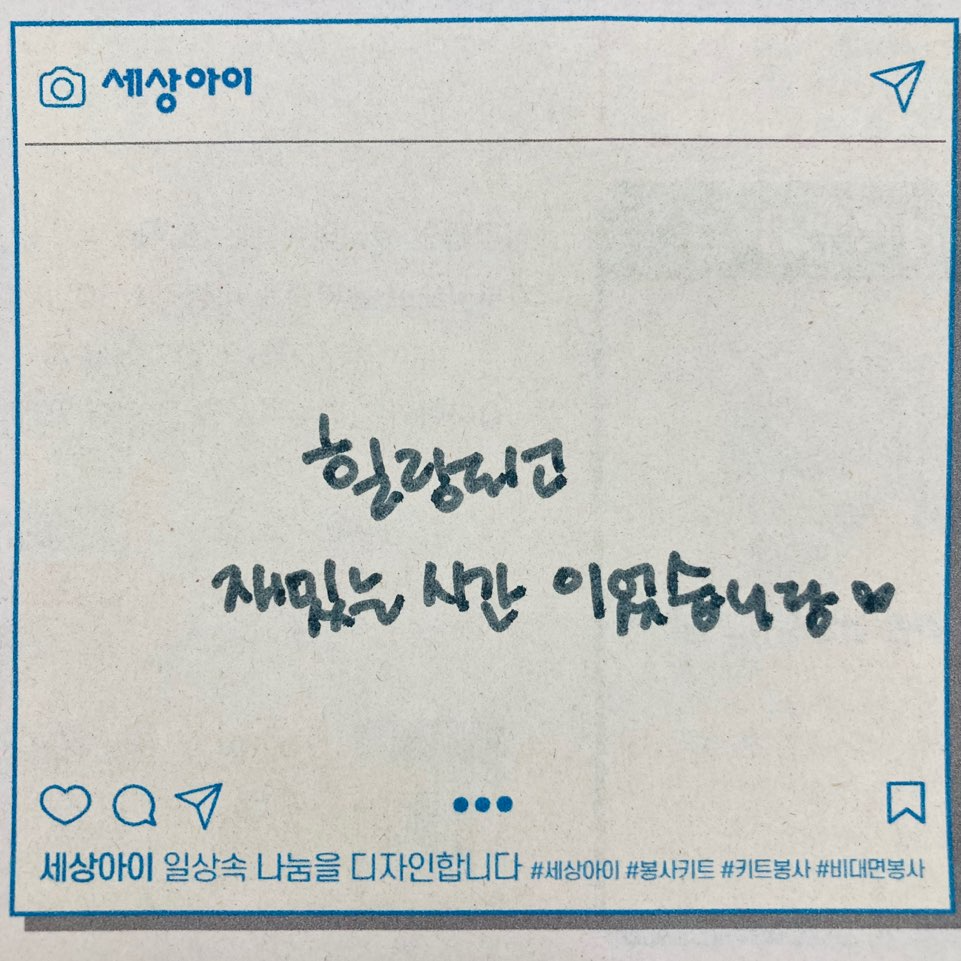 세상아이
힐링되고
재밌는 시간 이였습니당♥
세상아이 일상속 나눔을 디자인합니다 #세상아이 #봉사키트 #키트봉사 #비대면봉사